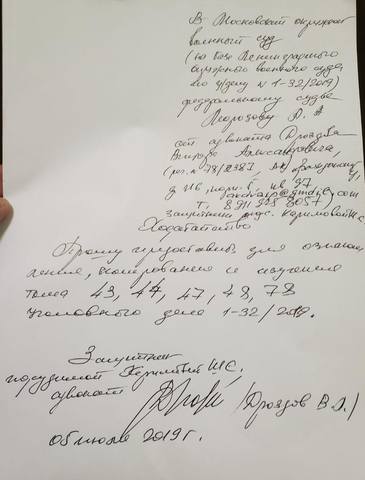 В Московский окружной
военный суд
(на базе Ленинградского
окружного военного суда,
по у/делу N 1-32/2019)
федеральному судье
Морозову А. А
от адвоката Дроздова
Виктора Александровича,
(рег. N 78/2387,
з
т. 8 911 928 8057)
защитника подс. Каримовой Ш.С.
Ходатайство
Прошу предоставить для ознаком
ления, копирования и изучения
тома 43, 44, 47, 48, 78
уголовного дела 1-32/2019.
Защитник
подсудимой Каримовой Ш.С.
адвокат /Дроздов В.А./
05 июля 2019 г.